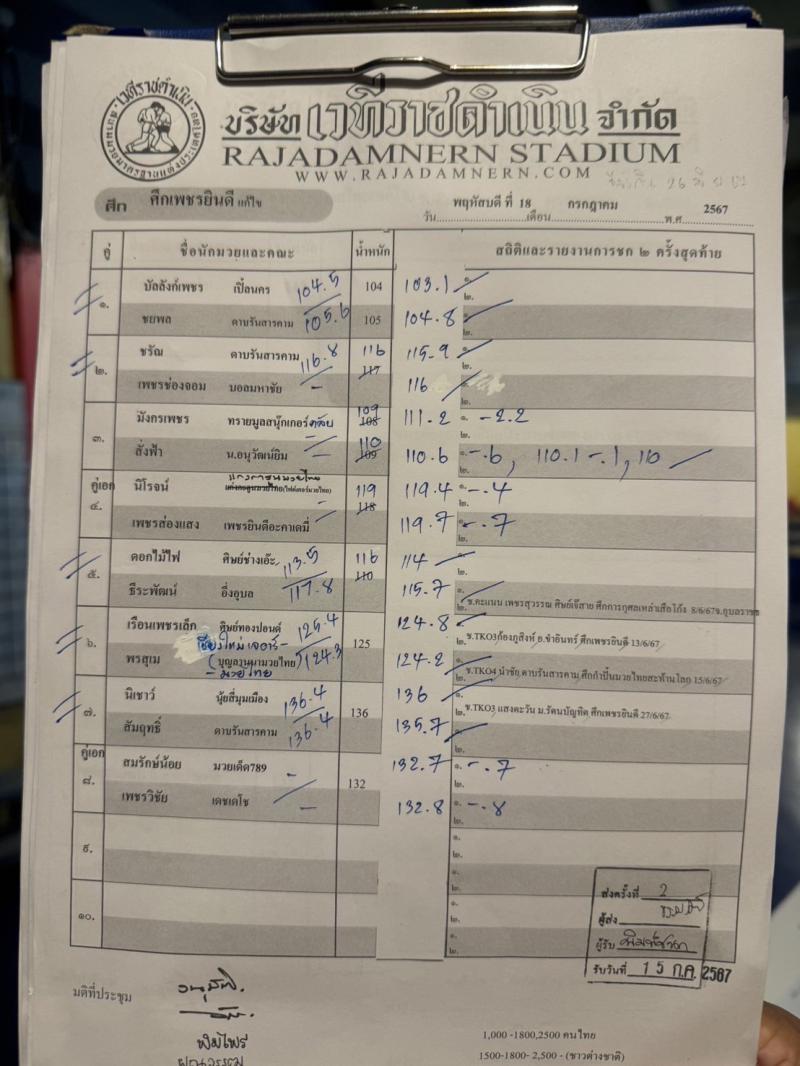 เวทีราชดำเนิน
บริษัท เวทีราชดำเนิน จำกัด
RAJADAMNERN STADIUM
WWW.RAJADAMNERN.COM
ศึก ศึกเพชรยินดี แก้ไข วัน พฤหัสบดี ที่ 18 เดือน กรกฎาคม พ.ศ 2567
คู่ ชื่อนักมวยและคณะ น้ำหนัก สถิติและรายงานการชก ๒ ครั้งสุดท้าย
๑. บัลลังก์เพชร เปิ้ลนคร 104.5 104 103.1 ๑. ๒.
ชยพล ดาบรันสารคาม 105.6 105 104.8 ๑. ๒.
๒. ชรัณ ดาบรันสารคาม 116.8 116 117 115.9 ๑. ๒.
เพชรช่องจอม บอลมหาชัย - 116 ๑. ๒.
๓. มังกรเพชร ทรายมูลสนุ๊กเกอร์คลับ 109 108 111.2 ๑. -2.2 ๒.
สั่งฟ้า น.อนุวัฒน์ยิม - 110 109 110.6 ๑. -.6, 110.1 -.1, 110 ๒.
คู่เอก ๔. นิโรจน์ 119 118 119.4 ๑. -.4 ๒.
เพชรส่องแสง เพชรยินดีอะคาเดมี่ - 119.7 ๑. -.7 ๒.
๕. ดอกไม้ไฟ ศิษย์ช่างเอ๊ะ 113.5 116 110 114 ๑. ๒.
ธีระพัฒน์ อึ่งอุบล 117.8 115.7 ๑. ๒. ช.คะแนน เพชรสุวรรณ ศิษย์เจ๊สาย ศึกการกุศลเหล่าเสือโก้ง 8/6/67จ.อุบลราชธ
๖. เรือนเพชรเล็ก ศิษย์ทองปอนด์ 125.4 125 124.8 ๑. ๒. ช.TKO3ก้องภูสิงห์ อ.ขำอินทร์ ศึกเพชรยินดี 13/6/67
พรสุเม (บุญลานนามวยไทย) 124.3 124.2 ๑. ๒. ช.TKO4 นำชัย ดาบรันสารคาม ศึกกำปั้นมวยไทยสะท้านโลก 15/6/67
- มวยไทย
๗. นิเชาว์ นุ้ยสี่มุมเมือง 136.4 136 136 ๑. ๒. ช.TKO3 แสงตะวัน ม.รัตนบัญฑิต ศึกเพชรยินดี 27/6/67
สัมฤทธิ์ ดาบรันสารคาม 136.4 135.7 ๑. ๒.
คู่เอก ๘. สมรักษ์น้อย มวยเด็ด789 - 132 132.7 ๑. -.7 ๒.
เพชรวิชัย เดชเดโช - 132.8 ๑. -.8 ๒.
๙. ๑. ๒. ๑. ๒.
๑๐. ๑. ๒. ๑. ๒.
ส่งครั้งที่ 2
ผู้ส่ง
ผู้รับ
รับวันที่ 15 ก.ค. 2567
มติที่ประชุม
1,000 -1800,2500 คนไทย
1500-1800- 2,500 - (ชาวต่างชาติ)